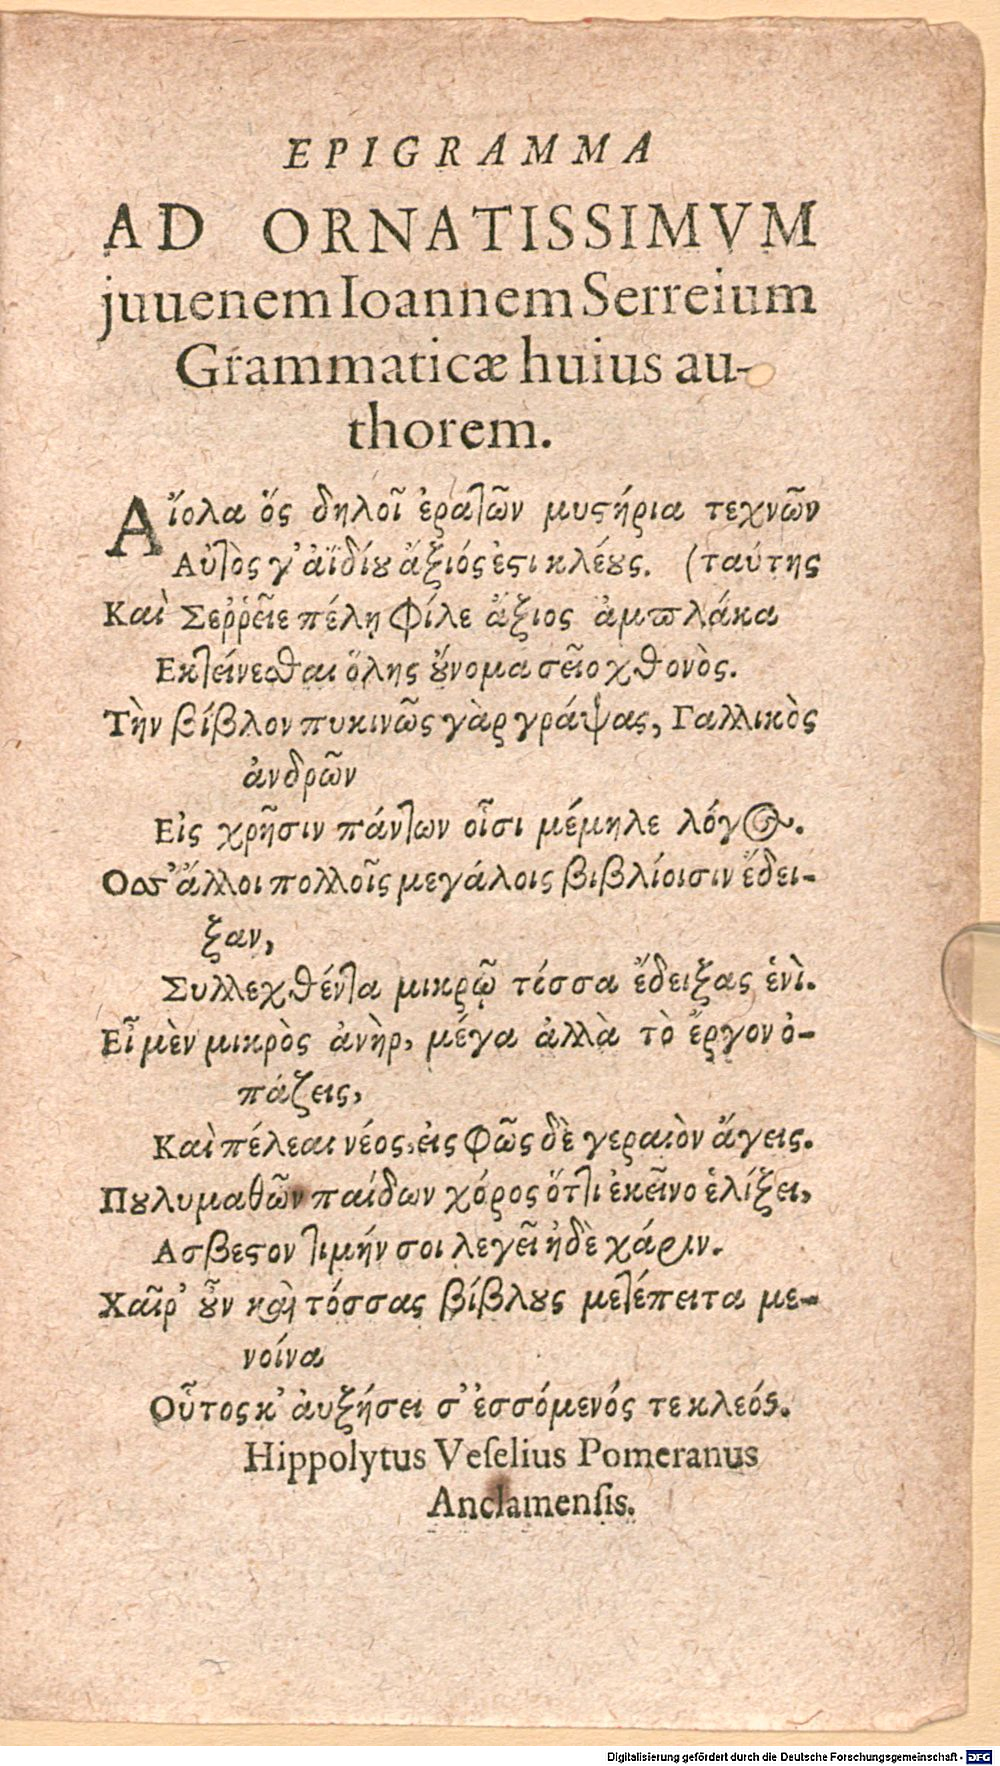 EPIGRAMMA
AD ORNATISSIMVM
juuenem Ioannem Serreium
Grammaticæ huius au-
thorem.
Αἴολα ὅς δηλοῖ ἐρατῶν μυϛήρια τεχνῶν
Αὐτὸς γ' ἀϊδίȣ ἄξιός ἐϛι κλέȣς. (ταύτης
Καὶ Σεῤῥεῖε πέλῃ φίλε ἄξιος ἀμπλάκα
Εκτείνεσθαι ὅλης ȣ̓́νομα σεῖο χθονὸς.
Τὴν βίβλον πυκινῶς γὰρ γράψας, Γαλλικὸς
ἀνδρῶν
Εἰς χρῆσιν πάντων οἷσι μέμηλε λόγος.
Οσσ' ἄλλοι πολλοῖς μεγάλοις βιβλίοισιν ἔδει-
ξαν,
Συλλεχθέντα μικρῷ τόσσα ἔδειξας ἑνὶ.
Εἶ μὲν μικρὸς ἀνὴρ, μέγα ἀλλὰ τὸ ἔργον ὀ-
πάζεις,
Καὶ πέλεαι νέος, εἰς φῶς δὲ γεραιὸν ἄγεις.
Πȣλυμαθῶν παίδων χόρος ὅττι ἐκεῖνο ἑλίξει,
Ασβεϛον τιμήν σοι λεγεῖ ἠδὲ χάριν.
Χαῖρ' ȣ̓͂ν καὶ τόσσας βίβλȣς μετέπειτα με-
νοίνα
Οὗτος κ' ἀυξήσει σ' ἐσσόμενός τε κλεός.
Hippolytus Veſelius Pomeranus
Anclamenſis.
Digitalisierung gefördert durch die Deutsche Forschungsgemeinschaft - DFG